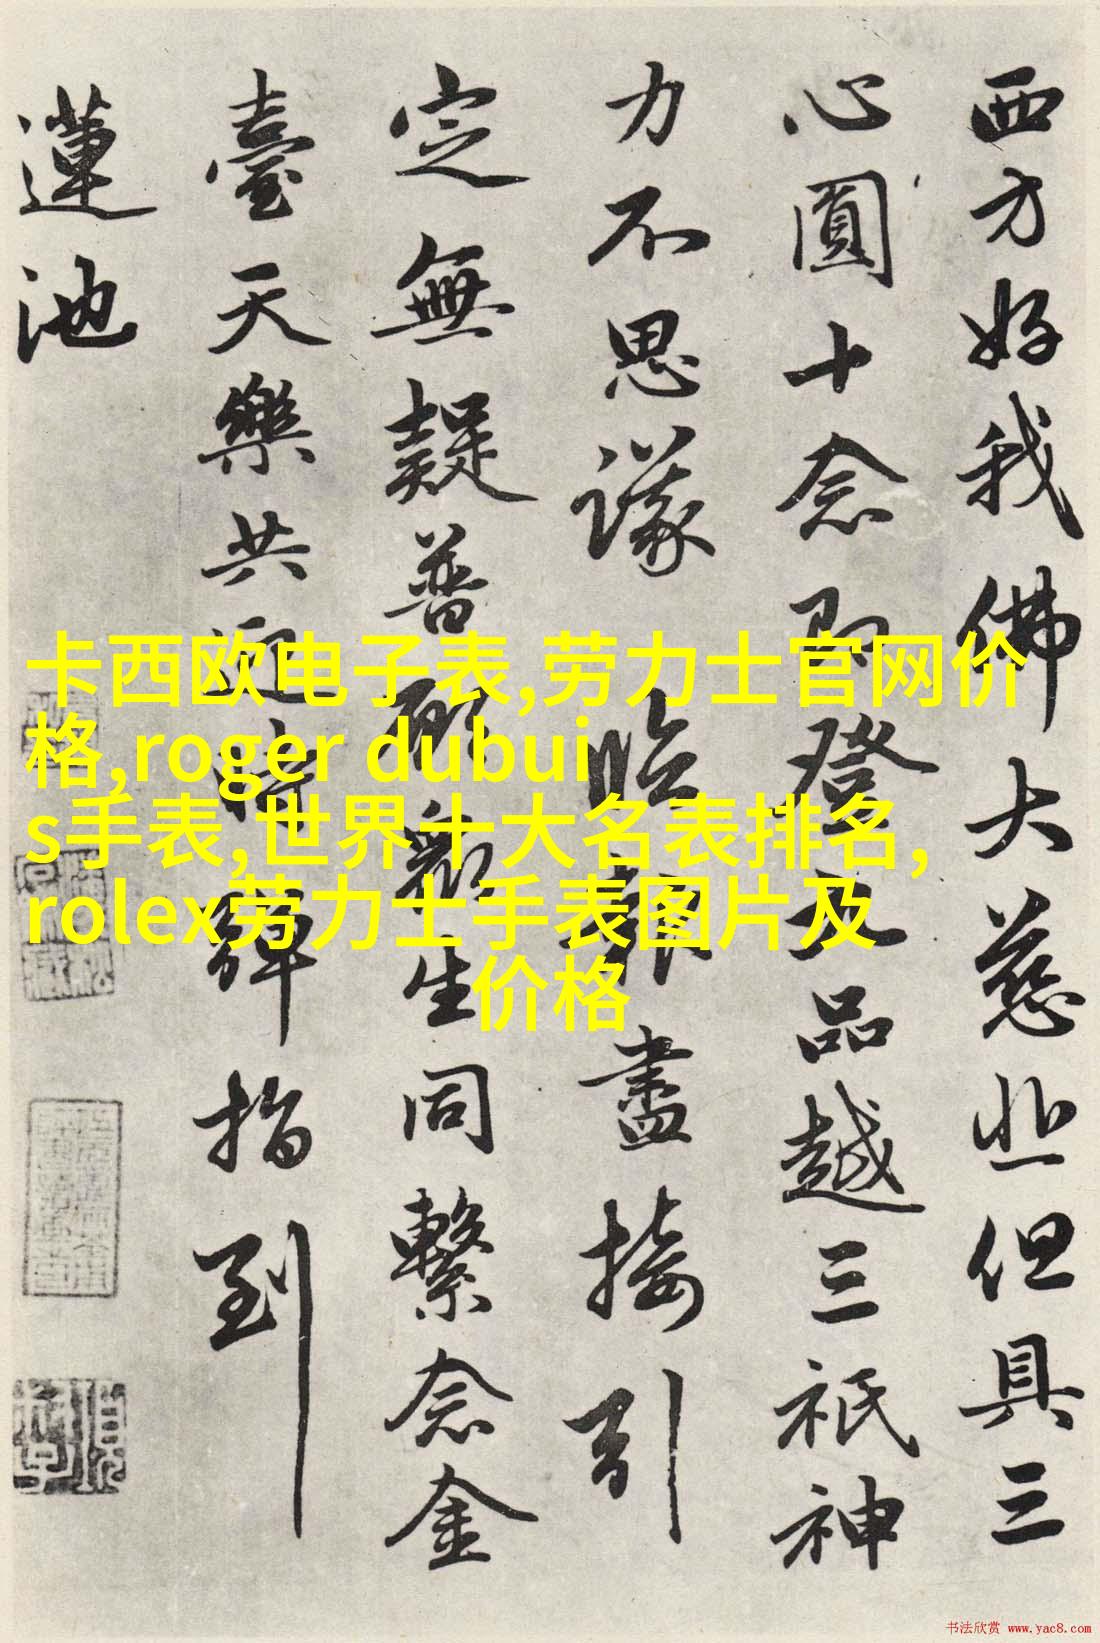 西方好我佛大慈悲但具三
心圓十念即登九品越三祇神
力不思議臨報盡接引
定無疑普眾生同繫念金
臺天樂共迎時彈指到
蓮池
卡西欧电子表,劳力士官网价
格,roger dubui
s手表,世界十大名表排名,
rolex劳力士手表图片及
价格
书法欣赏 www.yac8.com